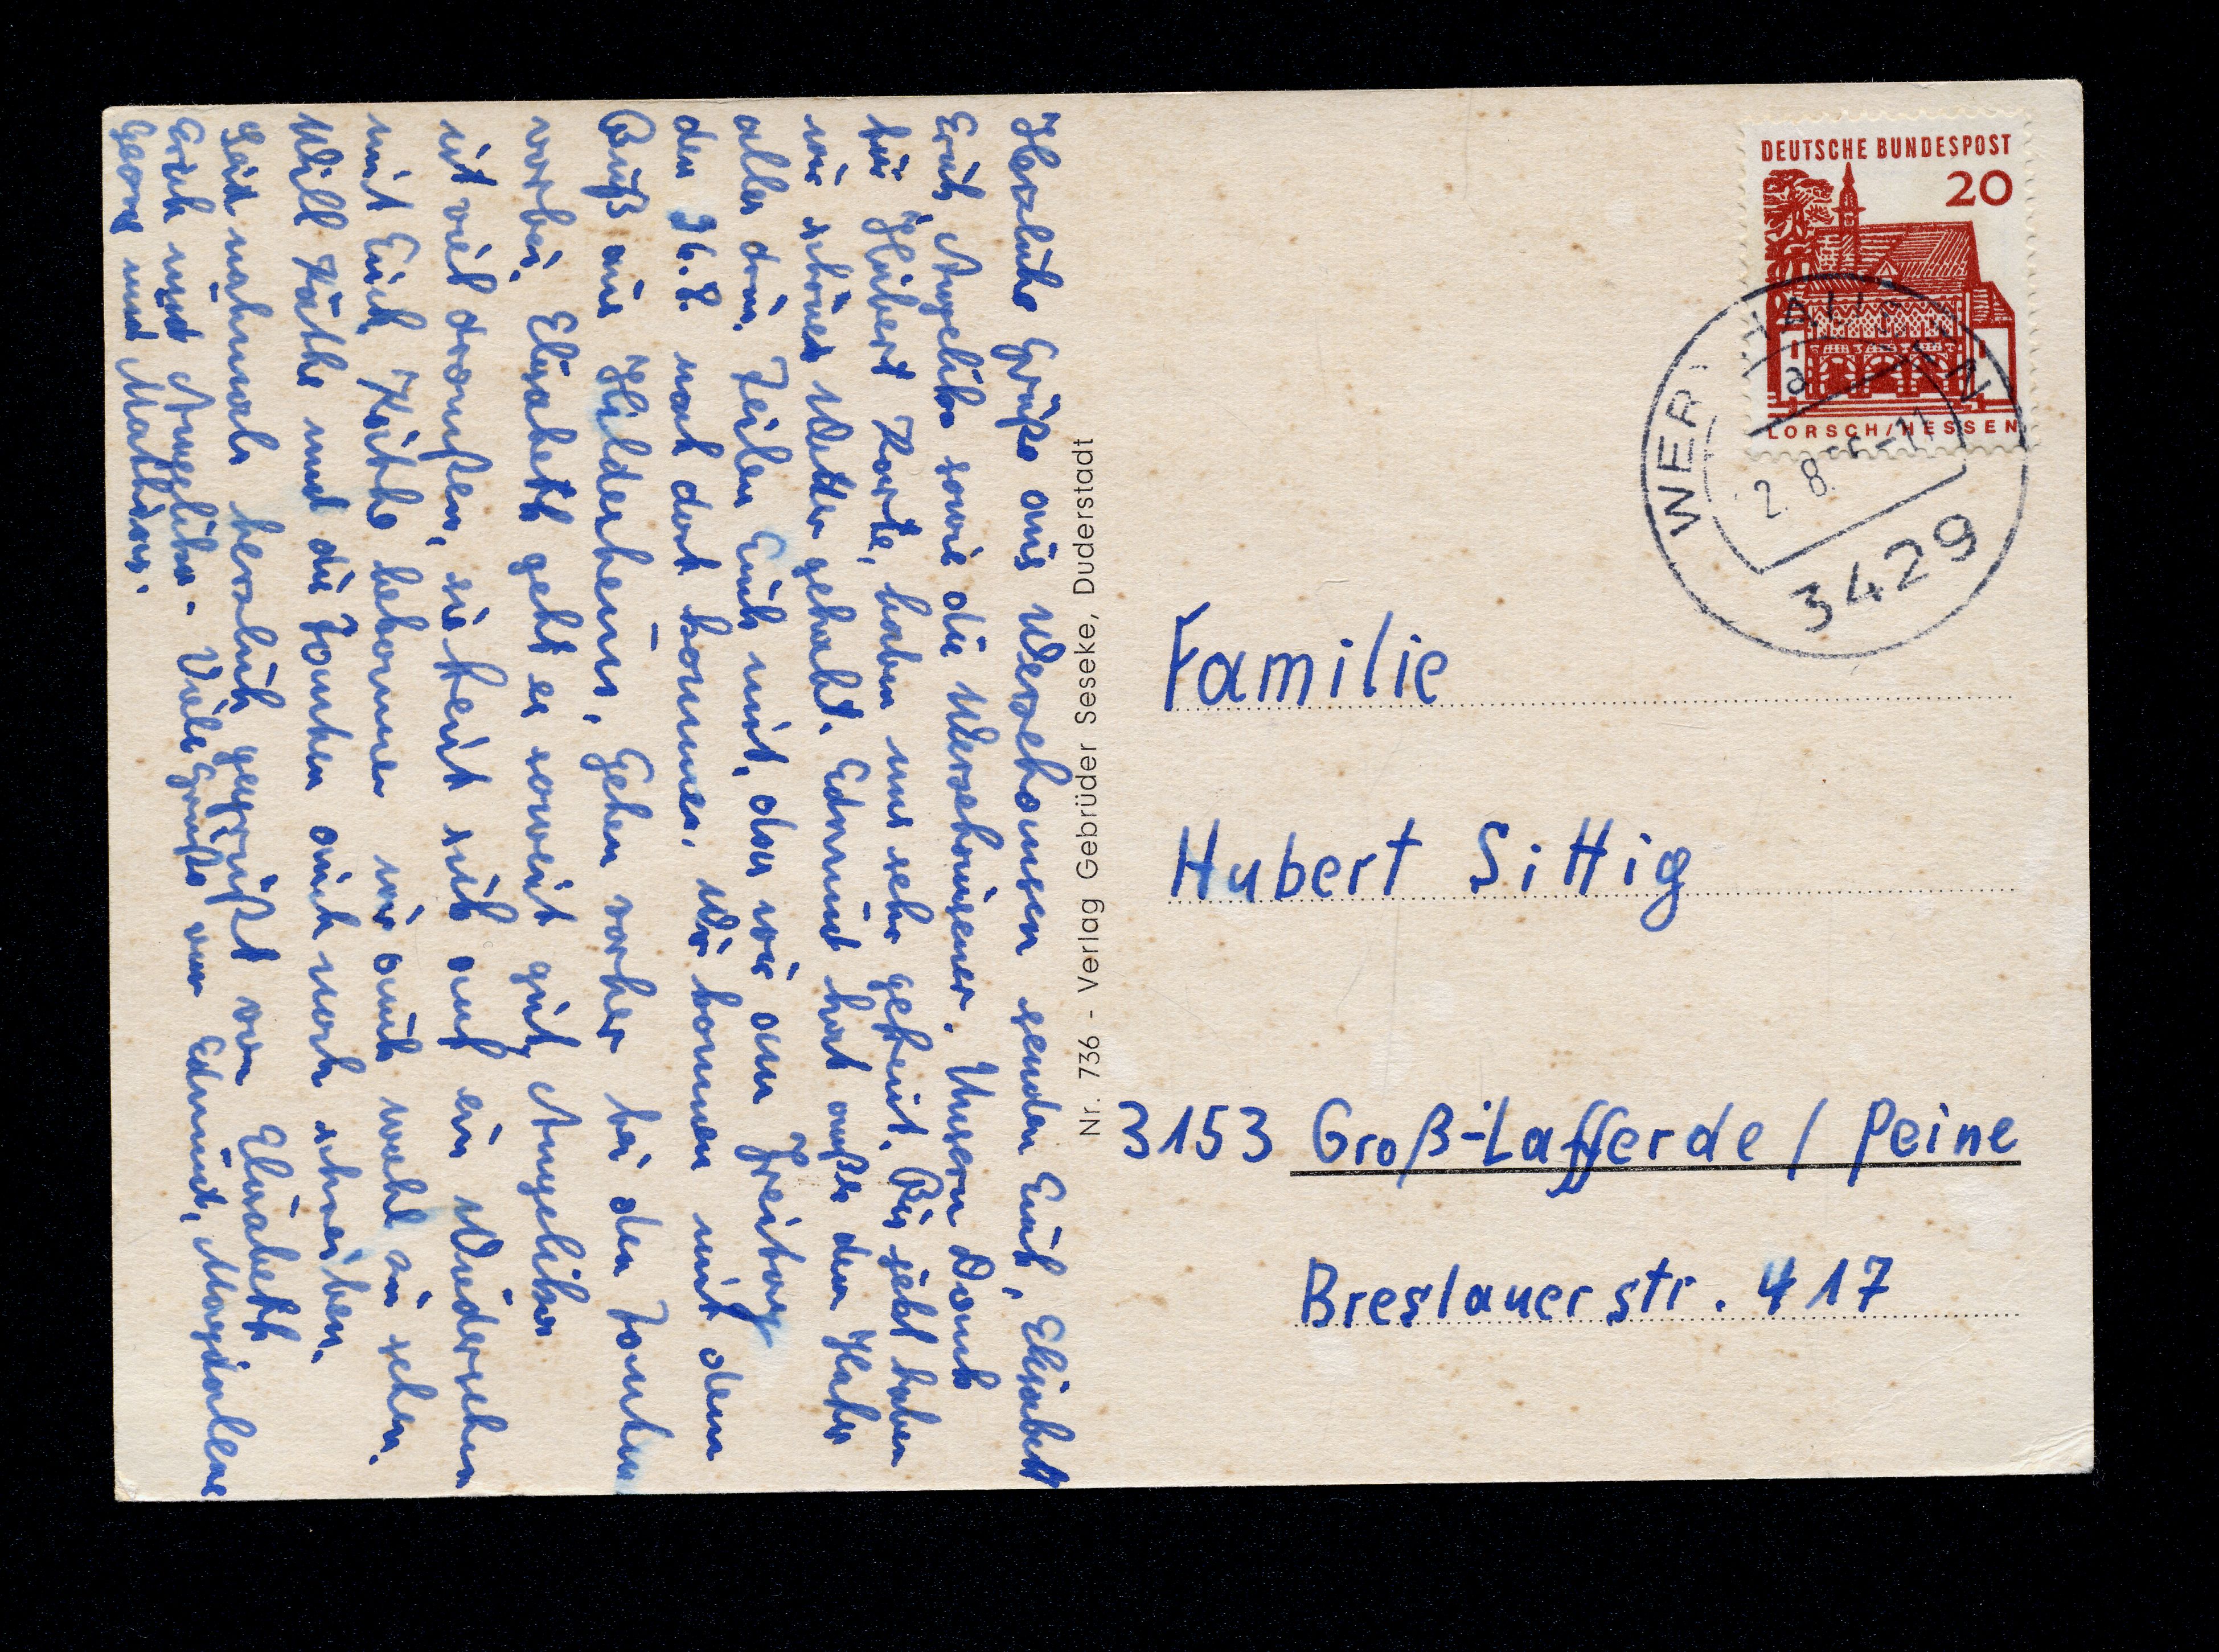 Herzliche Grüße aus Werxhausen senden Euch, Elisabeth
Erich, Angelika sowie die Werxhäuser. Unsern Dank
für Huberts Karte, haben uns sehr gefreut. Bis jetzt haben
wir schönes Wetter gehabt. Edmund hat außer den Hafer
alles drin. Teilen Euch mit, das wir am Freitag
den 26.8. nach dort kommen. Wir kommen mit dem
Buß aus Hildesheim. Gehen vorher bei den Tanten
vorbei. Elisabeth geht es soweit gut, Angelika
ist viel draußen, sie freut sich auf ein Wiedersehen
mit Euch. Käthe bekommen wir auch wohl zu sehen.
Will Käthe und die Tanten auch noch schreiben.
Seid nochmals herzlich gegrüßt von Elisabeth
Erich und Angelika. Viele Grüße von Edmund, Magdalene
Georg und Mathias.
Nr. 736 - Verlag Gebrüder Seseke, Duderstadt
DEUTSCHE BUNDESPOST
20
LORSCH/HESSEN
a
2 8. -11
3429
Familie
Hubert Sittig
3153 Groß-Lafferde / Peine
Breslauerstr. 417